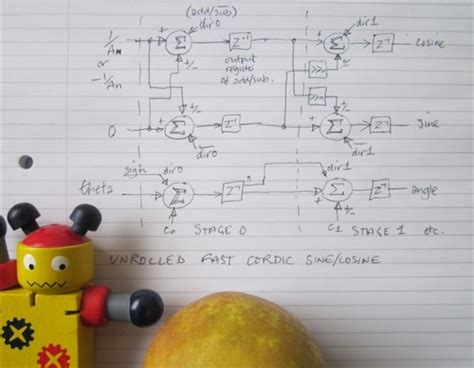 (add/sub)
dir0
dir1
1/An
or
-1/An
+
Σ
+/-
Z⁻¹
output
register
of add/sub.
+
Σ
±
Z⁻¹
cosine
>>1
>>1
0
+
Σ
+/-
dir0
Z⁻¹
+
Σ
+/-
dir1
Z⁻¹
sine
sign
dir0
dir1
theta
Σ
Z⁻¹
+
Σ
Z⁻¹
angle
+/-
C0
STAGE 0
C1
STAGE 1 etc.
UNROLLED FAST CORDIC SINE/COSINE